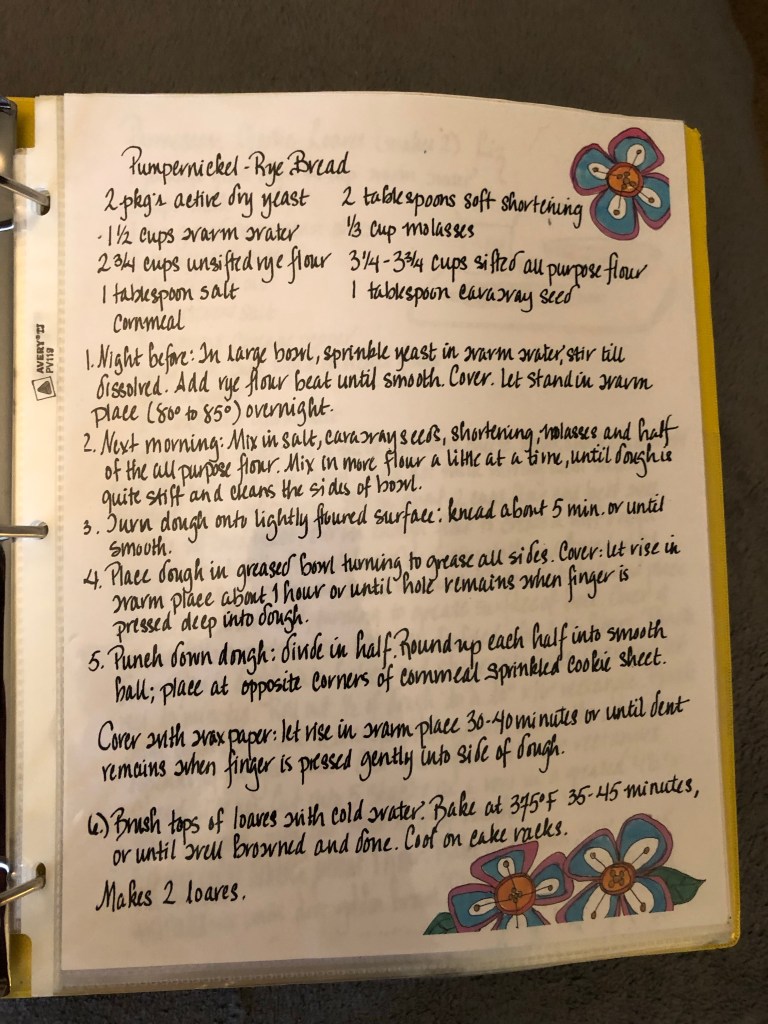 Pumpernickel-Rye Bread
2 pkg's active dry yeast
2 tablespoons soft shortening
1½ cups warm water
⅓ cup molasses
2¾ cups unsifted rye flour
3¼-3¾ cups sifted all purpose flour
1 tablespoon salt
1 tablespoon caraway seed
Cornmeal
1. Night before: In large bowl, sprinkle yeast in warm water, stir till
dissolved. Add rye flour beat until smooth. Cover. Let stand in warm
place (80° to 85°) overnight.
2. Next morning: Mix in salt, caraway seeds, shortening, molasses and half
of the all purpose flour. Mix in more flour a little at a time, until dough is
quite stiff and cleans the sides of bowl.
3. Turn dough onto lightly floured surface: knead about 5 min. or until
smooth.
4. Place dough in greased bowl turning to grease all sides. Cover: let rise in
warm place about 1 hour or until hole remains when finger is
pressed deep into dough.
5. Punch down dough: divide in half. Round up each half into smooth
ball; place at opposite corners of cornmeal sprinkled cookie sheet.
Cover with wax paper: let rise in warm place 30-40 minutes or until dent
remains when finger is pressed gently into side of dough.
6.) Brush tops of loaves with cold water. Bake at 375°F 35-45 minutes,
or until well browned and done. Cool on cake racks.
Makes 2 loaves.
AVERY®
PV119